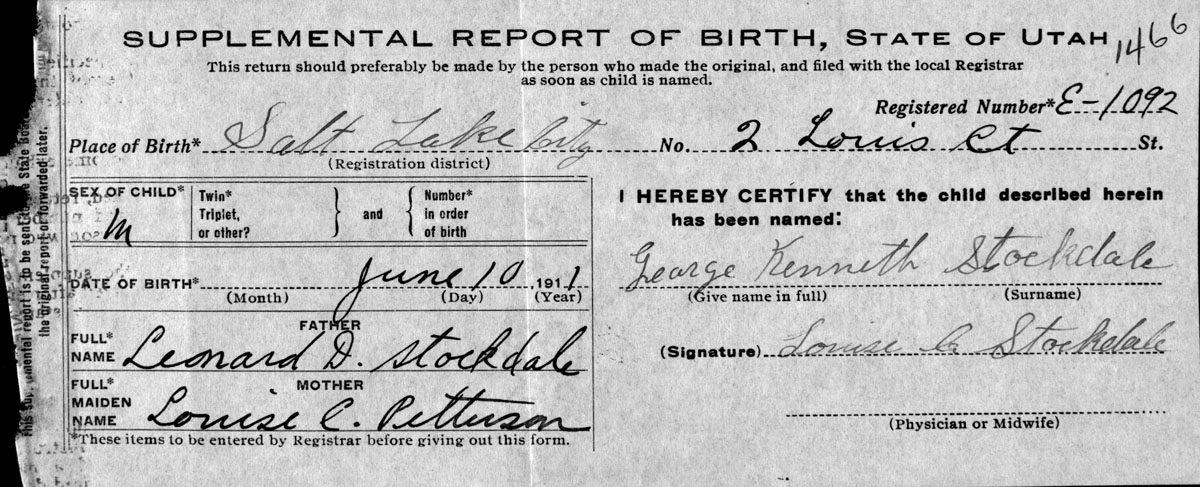 SUPPLEMENTAL REPORT OF BIRTH, STATE OF UTAH 1466
This return should preferably be made by the person who made the original, and filed with the local Registrar
as soon as child is named.
Registered Number* E-1092
Place of Birth* Salt Lake City No. 2 Louis Ct St.
(Registration district)
SEX OF CHILD* M
Twin*
Triplet,
or other?
and
Number*
in order
of birth
DATE OF BIRTH* June 10, 1911
(Month) (Day) (Year)
FATHER
FULL*
NAME Leonard D. Stockdale
MOTHER
FULL*
MAIDEN
NAME Louise C. Petterson
*These items to be entered by Registrar before giving out this form.
I HEREBY CERTIFY that the child described herein
has been named:
George Kenneth Stockdale
(Give name in full) (Surname)
(Signature) Louise Stockdale
(Physician or Midwife)
mental report is to be sent State
the original report or forwarded later.